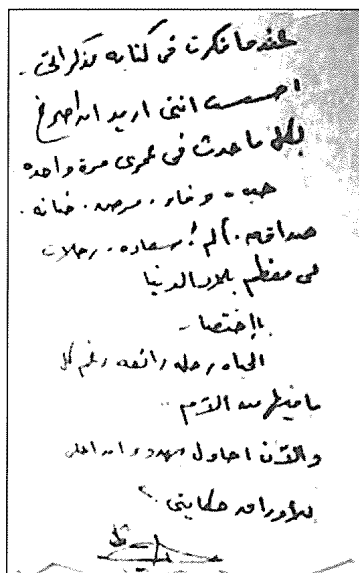 عندما فكرت فى كتابه مذكراتى .
احسست اننى اريد ان اصرخ
بكل ما حدث فى عمرى مرة واحده
حب . وفاء . مرض . خيانه .
صداقه . ألم ! سعاده . رحلات
فى معظم بلاد الدنيا
بإختصار
الحياه رحله رائعه رغم كل
ما فيها من آلام ..
والآن احاول بهدوء ان املى
للأوراق حكايتى